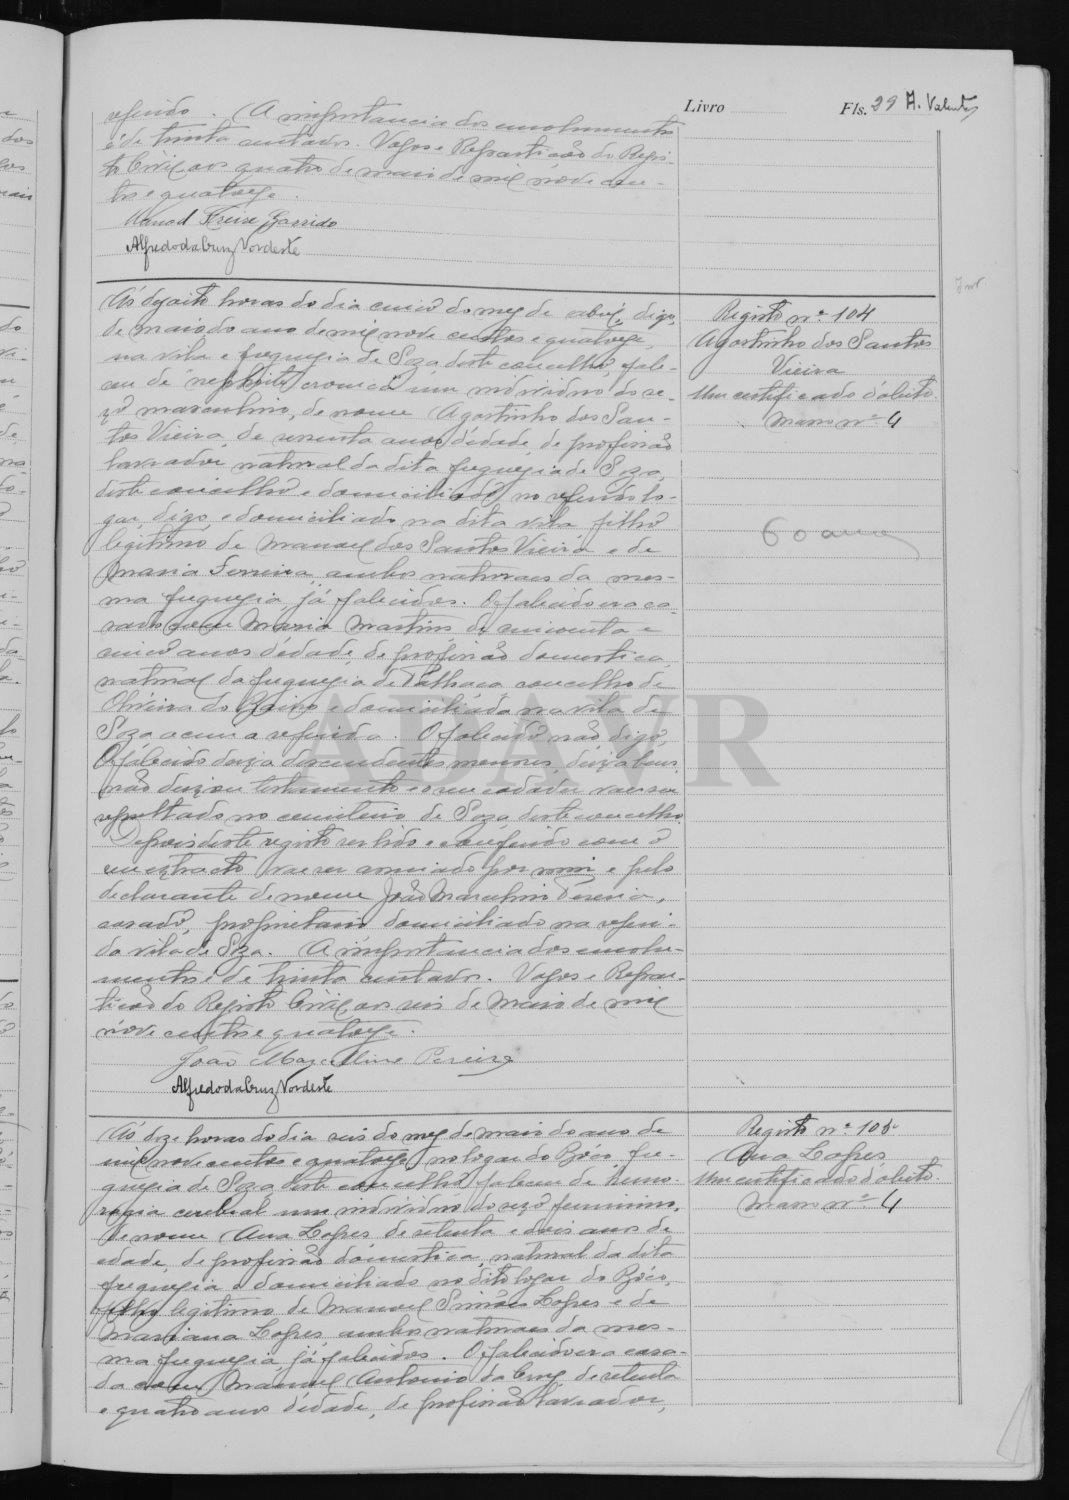 Livro
Fls. 29 A. Valente
referido. A importancia dos emolumentos
é de trinta centavos. Vagos e Repartição do Regis-
to Civil aos quatro de maio de mil nove cen-
tos e quatorze.
Manoel Freire Garrido
Alfredo da Cruz Nordeste
Ás dezoito horas do dia cinco do mez de abril, digo,
de maio do ano de mil nove centos e quatorze,
na vila e freguezia de Soza deste concelho, fale-
ceu de nephrite cronica um individuo do se-
xo masculino, de nome Agostinho dos San-
tos Vieira, de sessenta anos d'edade, de profissão
lavrador, natural da dita freguezia de Soza,
deste concelho e domiciliado no referido lo-
gar, digo, e domiciliado na dita vila filho
legitimo de Manoel dos Santos Vieira e de
Maria Ferreira, ambos naturaes da mes-
ma freguezia, já falecidos. O falecido era ca-
sado com Maria Martins, de cincoenta e
cinco anos d'edade, de profissão domestica,
natural da freguezia de Palhaça, concelho de
Oliveira do Bairro e domiciliada na vila de
Soza acima referida. O falecido não digo,
O falecido deixa descendentes menores, deixa bens,
não deixou testamento e o seu cadaver vae ser
sepultado no cemiterio de Soza deste concelho.
Depois deste registo ser lido e conferido com o
seu extracto vae ser assinado por mim e pelo
declarante de nome João Marcelino Pereira,
casado, proprietario domiciliado na referi-
da vila de Soza. A importancia dos emolu-
mentos é de trinta centavos. Vagos e Repar-
tição do Registo Civil aos seis de Maio de mil
nove centos e quatorze.
João Marcelino Pereira
Alfredo da Cruz Nordeste
Registo nº 104
Agostinho dos Santos
Vieira
Um certificado d'obito.
Maço nº 4
60 annos
Ás doze horas do dia seis do mez de maio do ano de
mil nove centos e quatorze, no logar do Bóco, fre-
guezia de Soza deste concelho faleceu de hemo-
ragia cerebral um individuo do sexo feminino,
de nome Ana Lopes de setenta e dois anos de
edade, de profissão domestica, natural da dita
freguezia e domiciliado no dito logar do Bóco,
filha legitimo de Manoel Simões Lopes e de
Mariana Lopes, ambos naturaes da mes-
ma freguezia, já falecidos. O falecido era casa-
da com Manoel Antonio da Cruz, de setenta
e quatro anos d'edade, de profissão lavrador,
Registo nº 105
Ana Lopes
Um certificado d'obito.
Maço nº 4
ADAVR